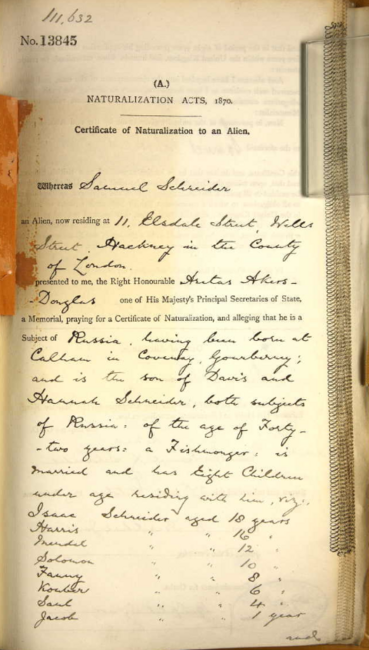 111,632
No. 13845
(A.)
NATURALIZATION ACTS, 1870.
Certificate of Naturalization to an Alien.
Whereas Samuel Schreider
an Alien, now residing at 11, Elsdale Street, Wells
Street, Hackney in the County
of London.
presented to me, the Right Honourable Aretas Akers-
-Douglas one of His Majesty's Principal Secretaries of State,
a Memorial, praying for a Certificate of Naturalization, and alleging that he is a
Subject of Russia, having been born at
in
and is the son of Davis and
Hannah Schreider, both subjects
of Russia: of the age of Forty-
-two years: a Fishmonger: is
married and has Eight Children
under age residing with him, viz:
Isaac Schreider aged 18 years
Harris " " 16 "
" " 12 "
Solomon " " 10 "
Fanny " " 8 "
" " 6 "
Saul " " 4 "
Jacob " " 1 year
and